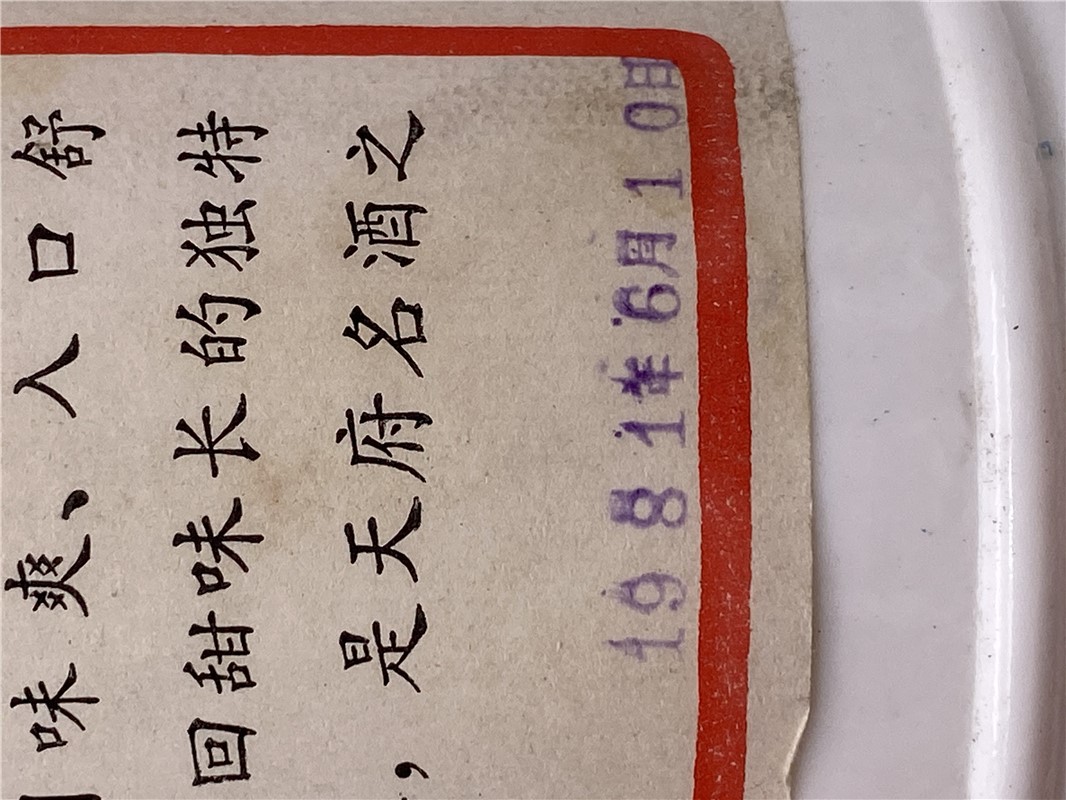 味爽、入口舒
回甜味长的独特
，是天府名酒之
1981年6月10日